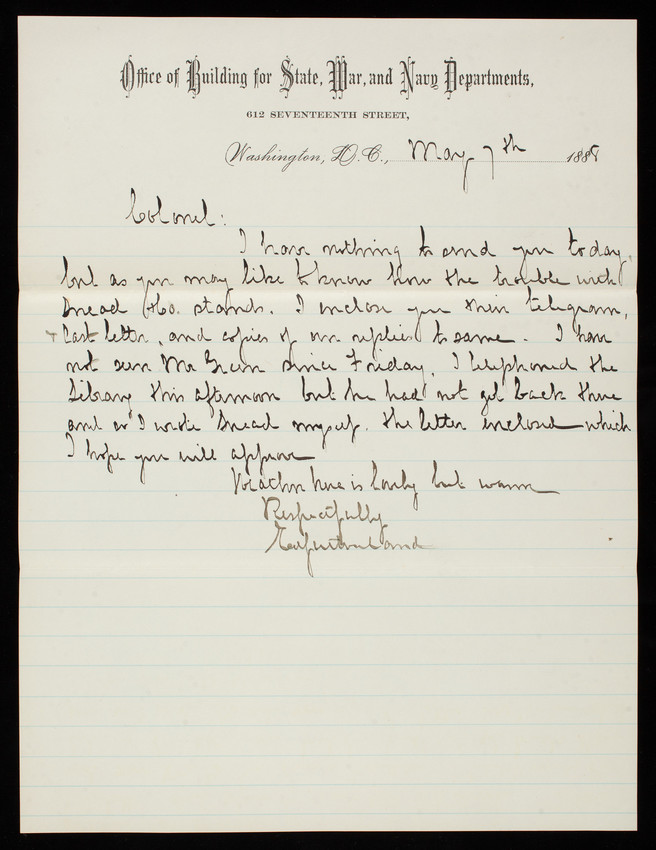 Office of Building for State, War, and Navy Departments,
612 SEVENTEENTH STREET,
Washington, D.C., May 7th 1888
Colonel:
I have nothing to send you today,
but as you may like to know how the trouble with
Snead & Co. stands. I enclose you their telegram,
+ last letter, and copies of our replies to same. I have
not seen Mr Green since Friday. I telephoned the
Library this afternoon but he had not got back there
and so I wrote Snead myself. the letter enclosed which
I hope you will approve
Weather here is lovely but warm
Respectfully